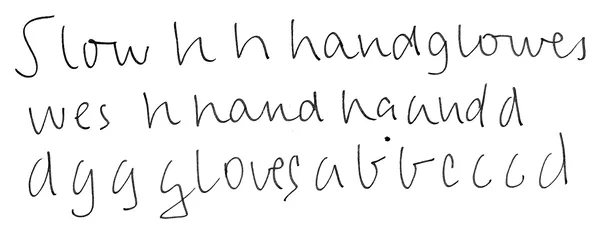 Slow h h handglowes
wes h hand haundd
d g g gloves a b b c c c d